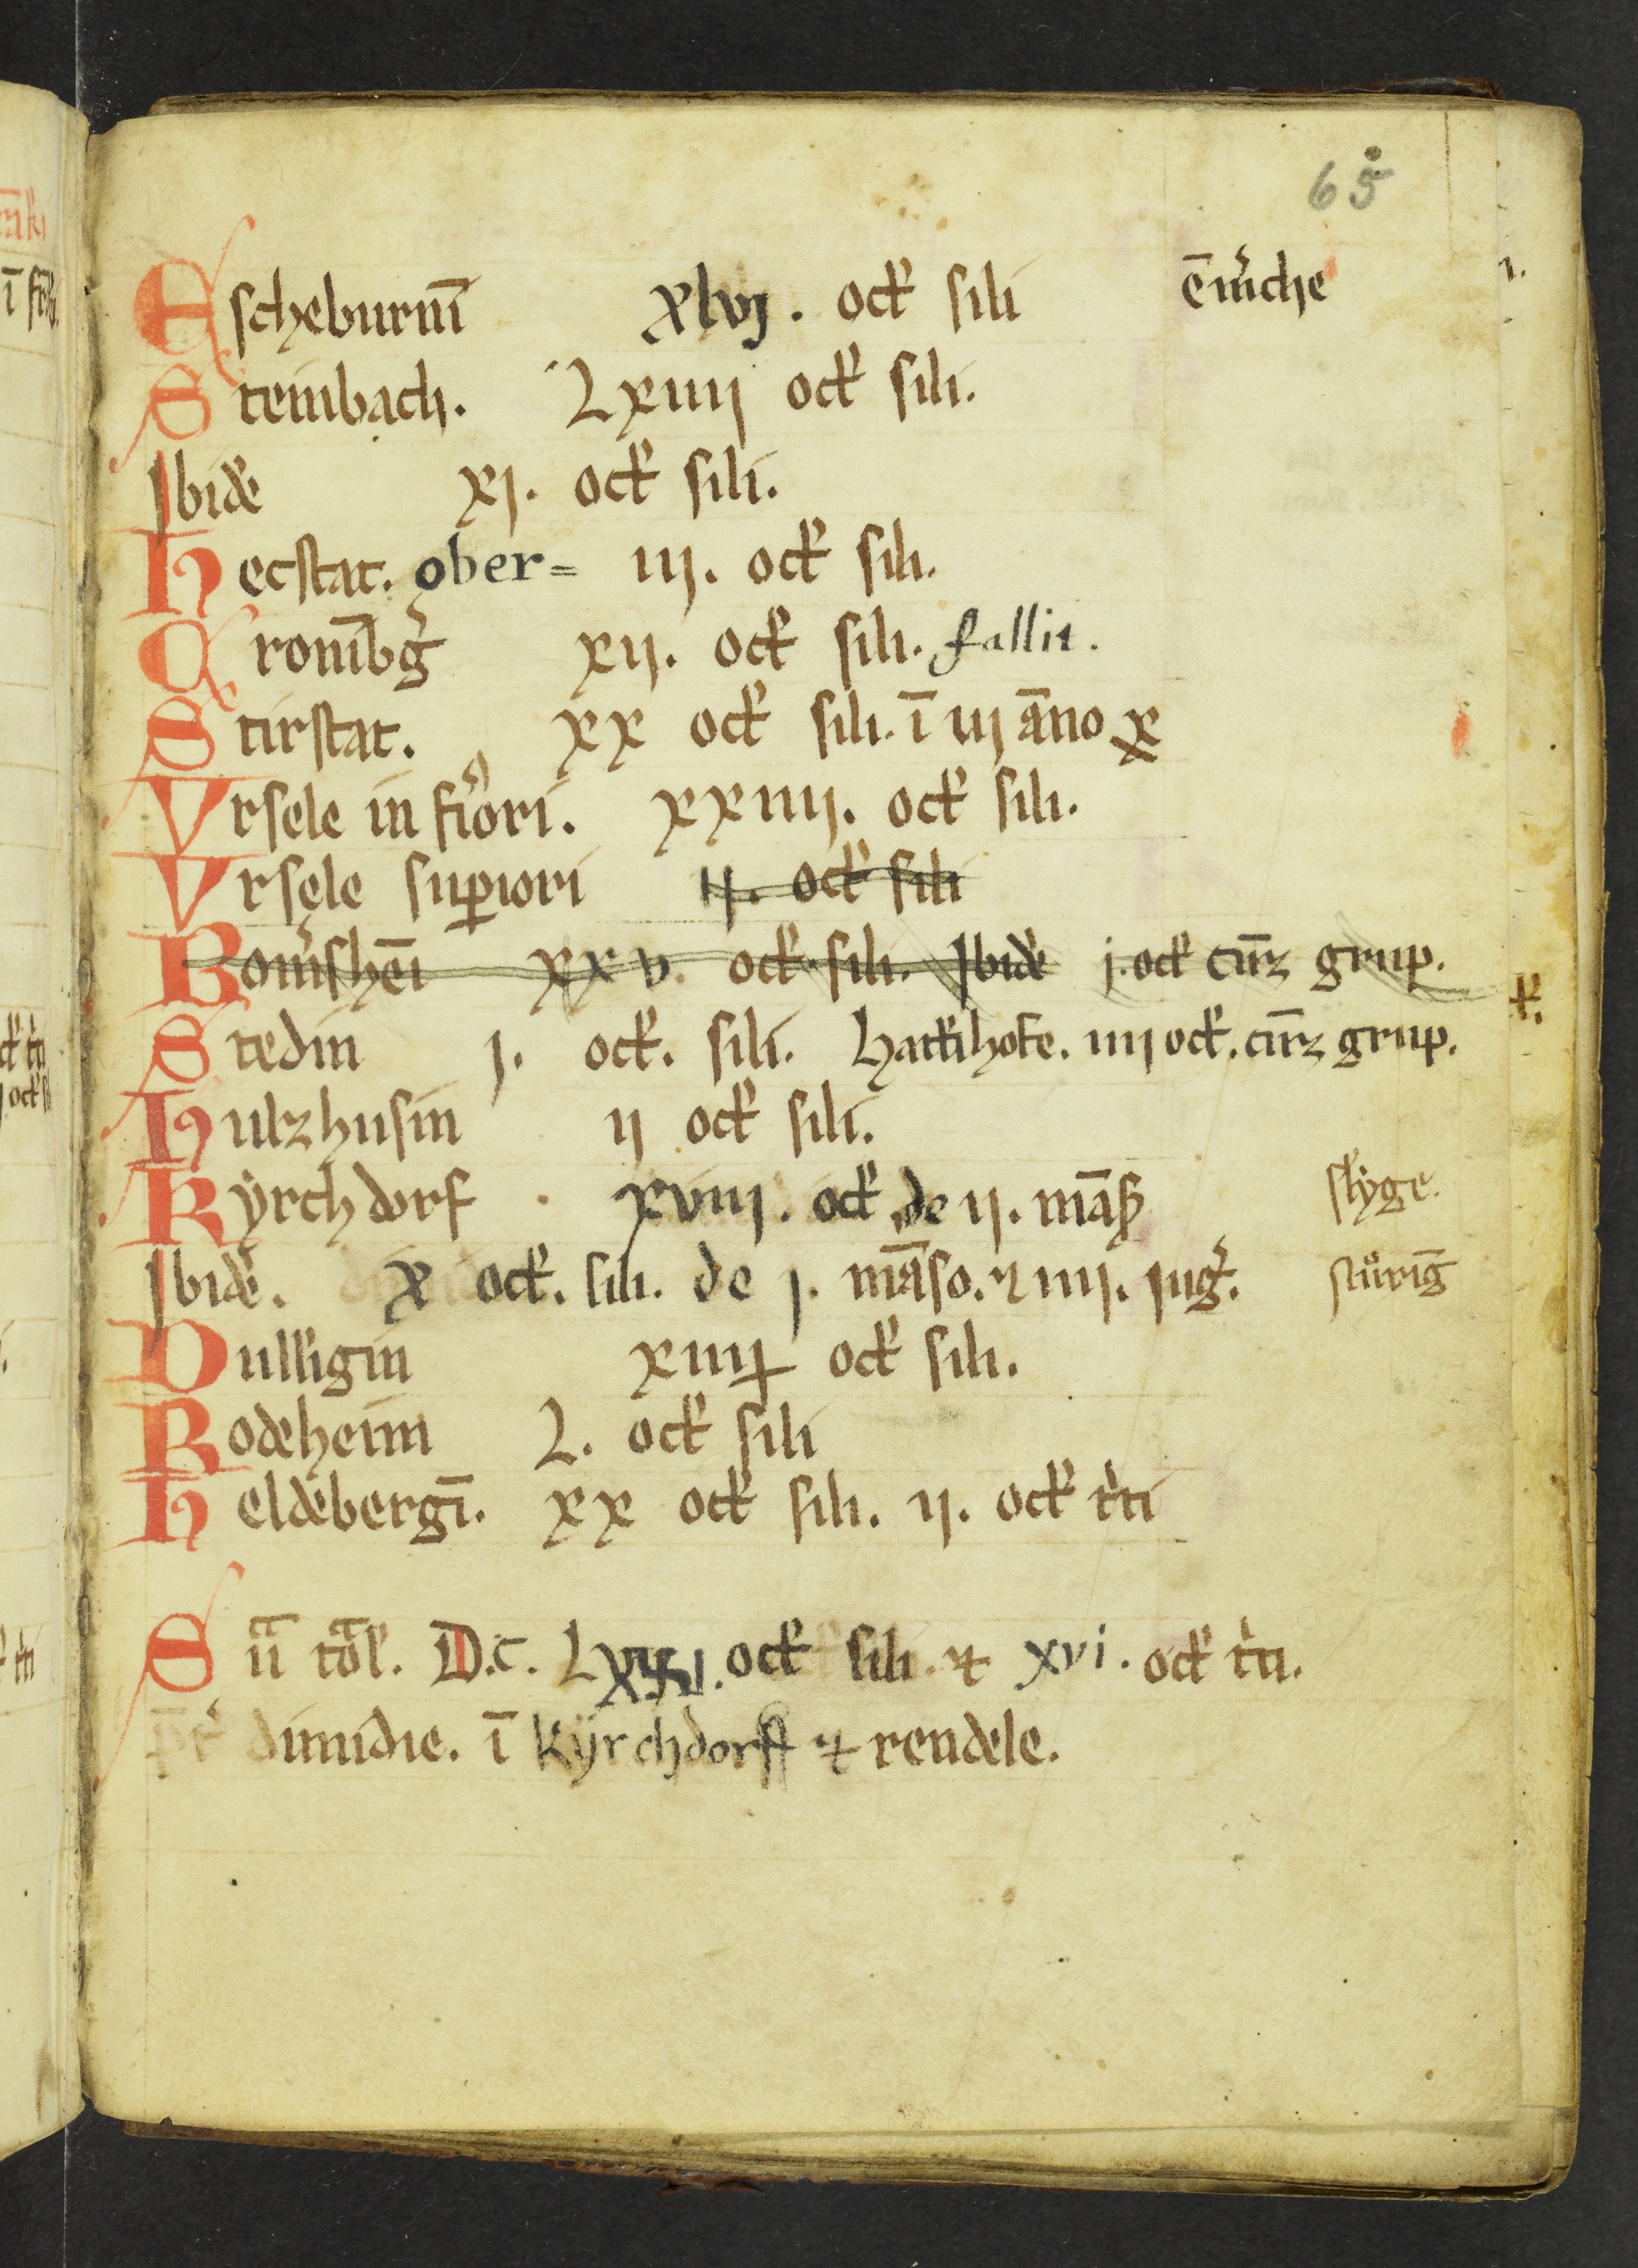 65
Escheburnī xlvj. octł sili ēm̄che
Steinbach. Lxiiij octł sili.
Ibidē xj. octł sili.
Hecstat. ober= iij. octł sili.
Cronībg̃ xij. octł sili. fallit.
Stirstat. xx octł sili. ī iij āno x
Ursele in fiori. xxiiij. octł sili.
Ursele suꝑiori ij. octł sili
Bom̄shēi xxv. octł. sili. Ibidē j. octł cūrz grup.
Stedin j. octł. sili. Hattīhofe. iiij octł. cūrz grup.
Hulzhusin ij octł sili.
Kÿrchdorf xviij. octł de ij. māß slyge.
Ibidē. x octł. sili. de j. māso. ⁊ iiij. jug̃. stůrīg
Dulligin xiiij octł sili.
Rodeheim L. octł sili
Heldēbergī. xx octł sili. ij. octł t̃ti
Sūa tōl. D.C. Lx octł sili ⁊ xvi. octł t̃ti.
dimidie. ī Kÿrchdorff ⁊ rendele.